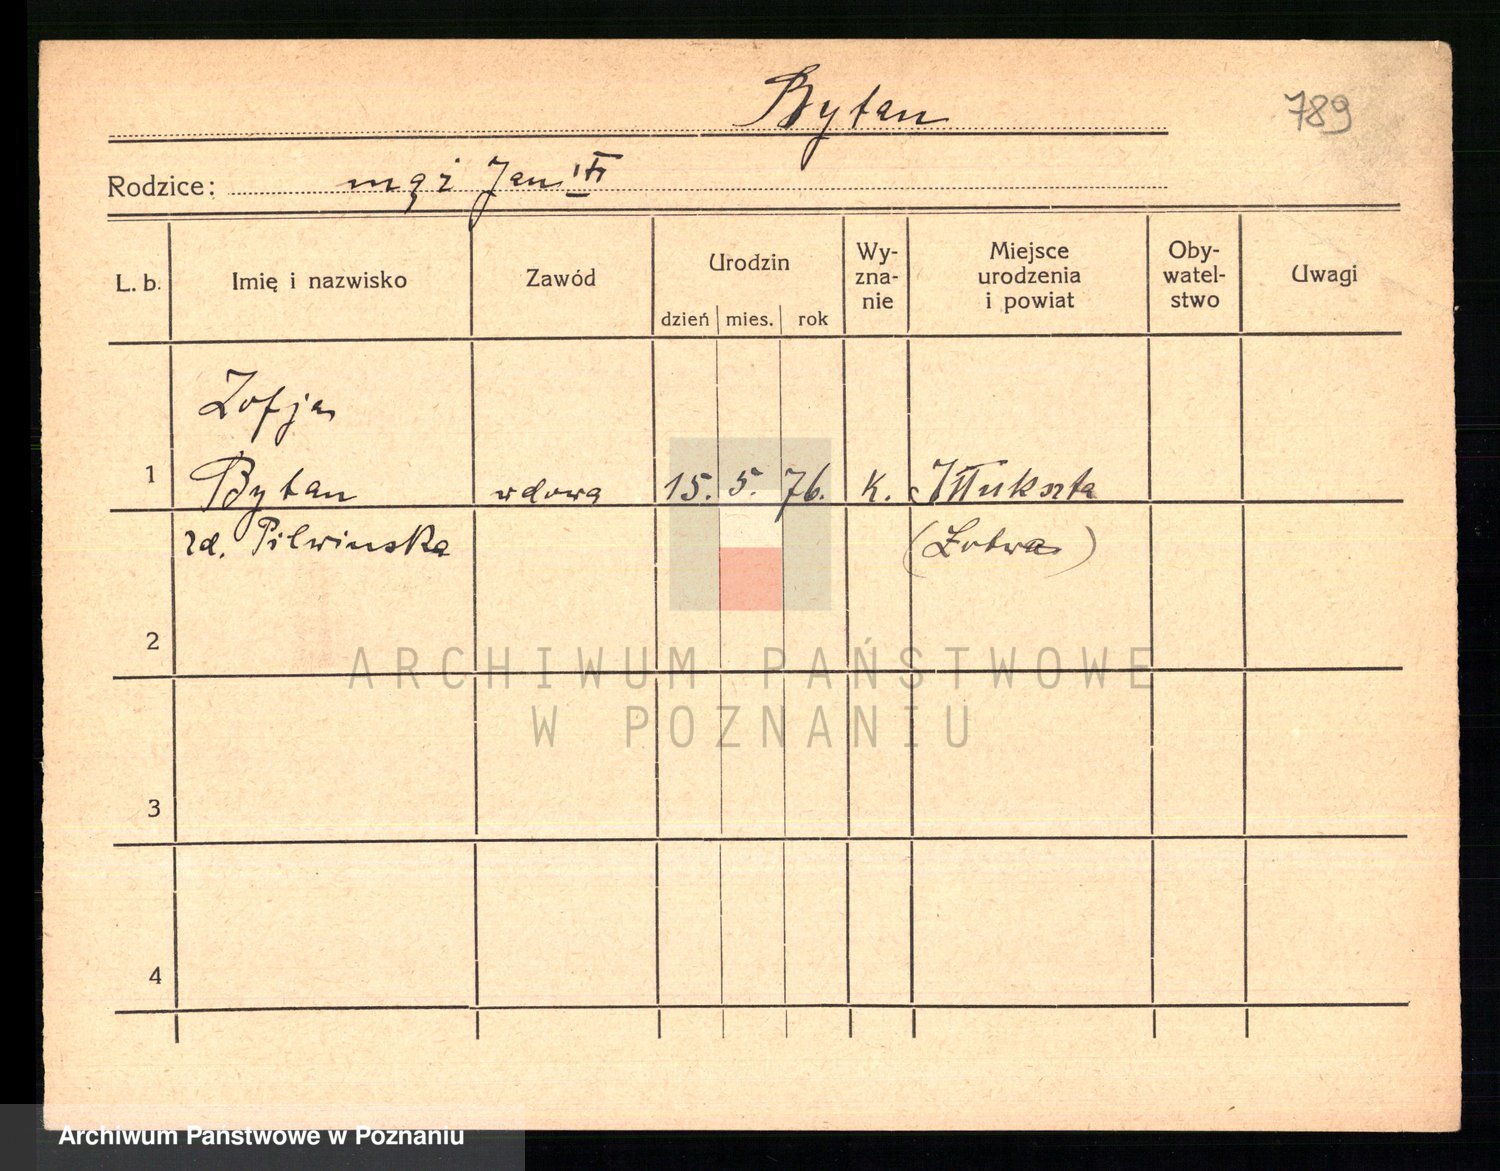 Bytan
789
Rodzice: mąż Jan
L. b.
Imię i nazwisko
Zawód
Urodzin
dzień mies. rok
Wy-
zna-
nie
Miejsce
urodzenia
i powiat
Oby-
watel-
stwo
Uwagi
Zofja
1 Bytan wdowa 15. 5. 76. K. Iłłukszta
zd. Pilwinska (Łotwa)
2
3
4
ARCHIWUM PAŃSTWOWE
W POZNANIU
Archiwum Państwowe w Poznaniu